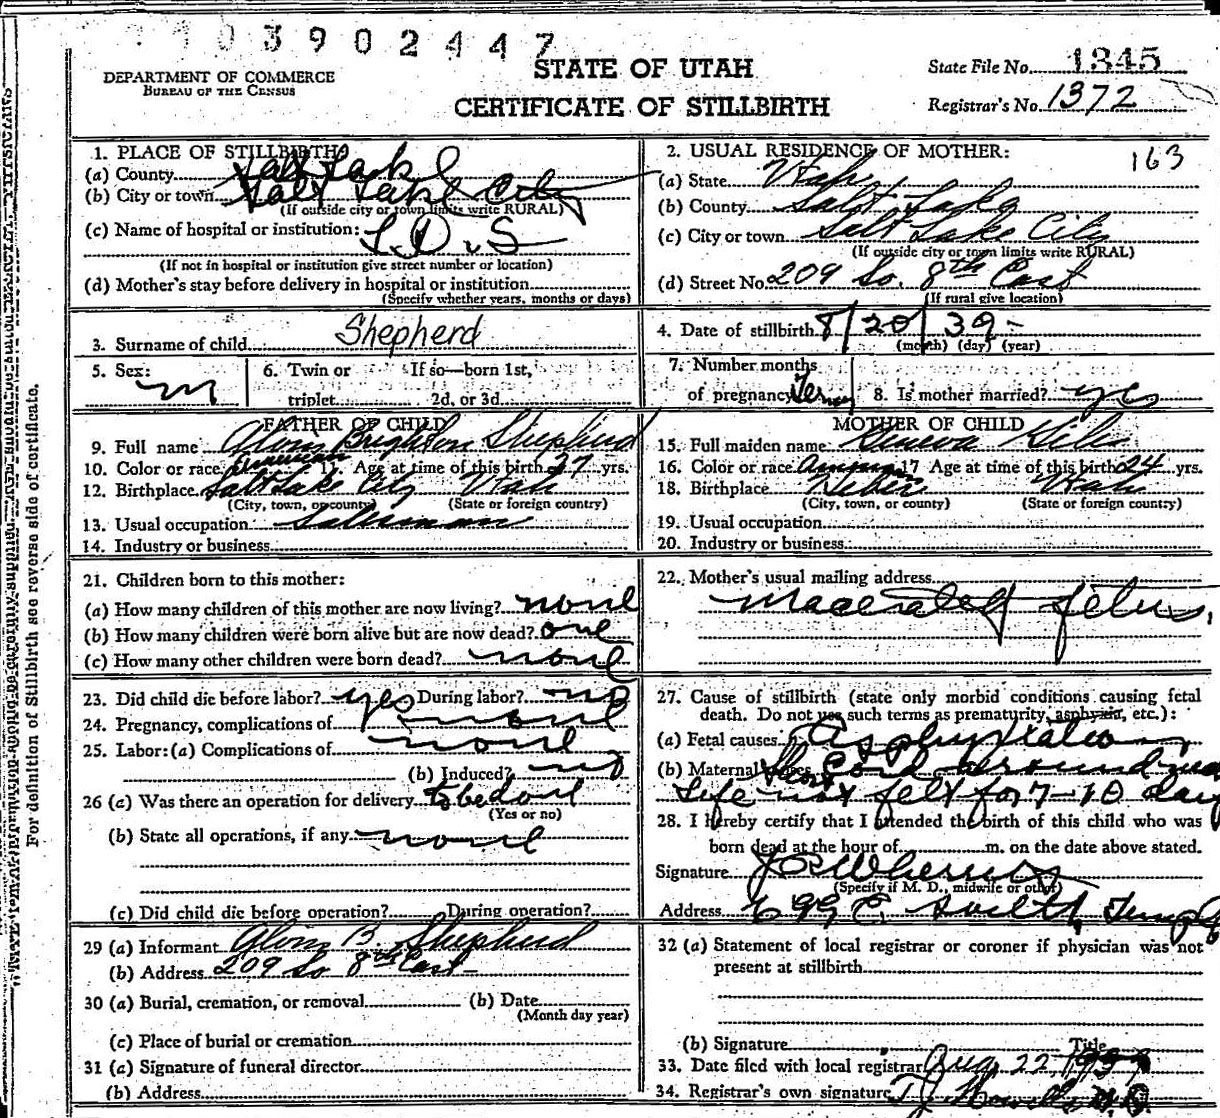 1 1 0 3 9 0 2 4 4 7
DEPARTMENT OF COMMERCE
BUREAU OF THE CENSUS
STATE OF UTAH
CERTIFICATE OF STILLBIRTH
State File No. 1345
Registrar's No. 1372
1. PLACE OF STILLBIRTH:
(a) County Salt Lake
(b) City or town Salt Lake City
(If outside city or town limits write RURAL)
(c) Name of hospital or institution: L.D.S
(If not in hospital or institution give street number or location)
(d) Mother's stay before delivery in hospital or institution
(Specify whether years, months or days)
2. USUAL RESIDENCE OF MOTHER: 163
(a) State Utah
(b) County Salt Lake
(c) City or town Salt Lake City
(If outside city or town limits write RURAL)
(d) Street No. 209 So. 8th East
(If rural give location)
3. Surname of child Shepherd
4. Date of stillbirth 8/20/39-
(month) (day) (year)
5. Sex: m
6. Twin or triplet If so—born 1st, 2d, or 3d
7. Number months
of pregnancy Term
8. Is mother married? yes
FATHER OF CHILD
9. Full name Brighton Shepherd
10. Color or race 11. Age at time of this birth 27 yrs.
12. Birthplace Salt Lake City Utah
(City, town, or county) (State or foreign country)
13. Usual occupation Salesman
14. Industry or business
MOTHER OF CHILD
15. Full maiden name Geneva
16. Color or race 17 Age at time of this birth 24 yrs.
18. Birthplace Heber Utah
(City, town, or county) (State or foreign country)
19. Usual occupation
20. Industry or business
21. Children born to this mother:
(a) How many children of this mother are now living? none
(b) How many children were born alive but are now dead? one
(c) How many other children were born dead? none
22. Mother's usual mailing address
Macerated fetus.
23. Did child die before labor? yes During labor? no
24. Pregnancy, complications of none
25. Labor: (a) Complications of none
(b) Induced? no
26 (a) Was there an operation for delivery
(Yes or no)
(b) State all operations, if any none
(c) Did child die before operation? During operation?
27. Cause of stillbirth (state only morbid conditions causing fetal
death. Do not use such terms as prematurity, asphyxia, etc.):
(a) Fetal causes Asphyxiation
(b) Maternal causes Cord around
Life not felt for 7-10 days
28. I hereby certify that I attended the birth of this child who was
born dead at the hour of m. on the date above stated.
Signature
(Specify if M. D., midwife or other)
Address 699 E. South Temple
29 (a) Informant B. Shepherd
(b) Address 209 So 8th East
30 (a) Burial, cremation, or removal (b) Date
(Month day year)
(c) Place of burial or cremation
31 (a) Signature of funeral director
(b) Address
32 (a) Statement of local registrar or coroner if physician was not
present at stillbirth
(b) Signature Title
33. Date filed with local registrar Aug. 22, 1939
34. Registrar's own signature T.J. Howells M.D
For definition of Stillbirth see reverse side of certificate.